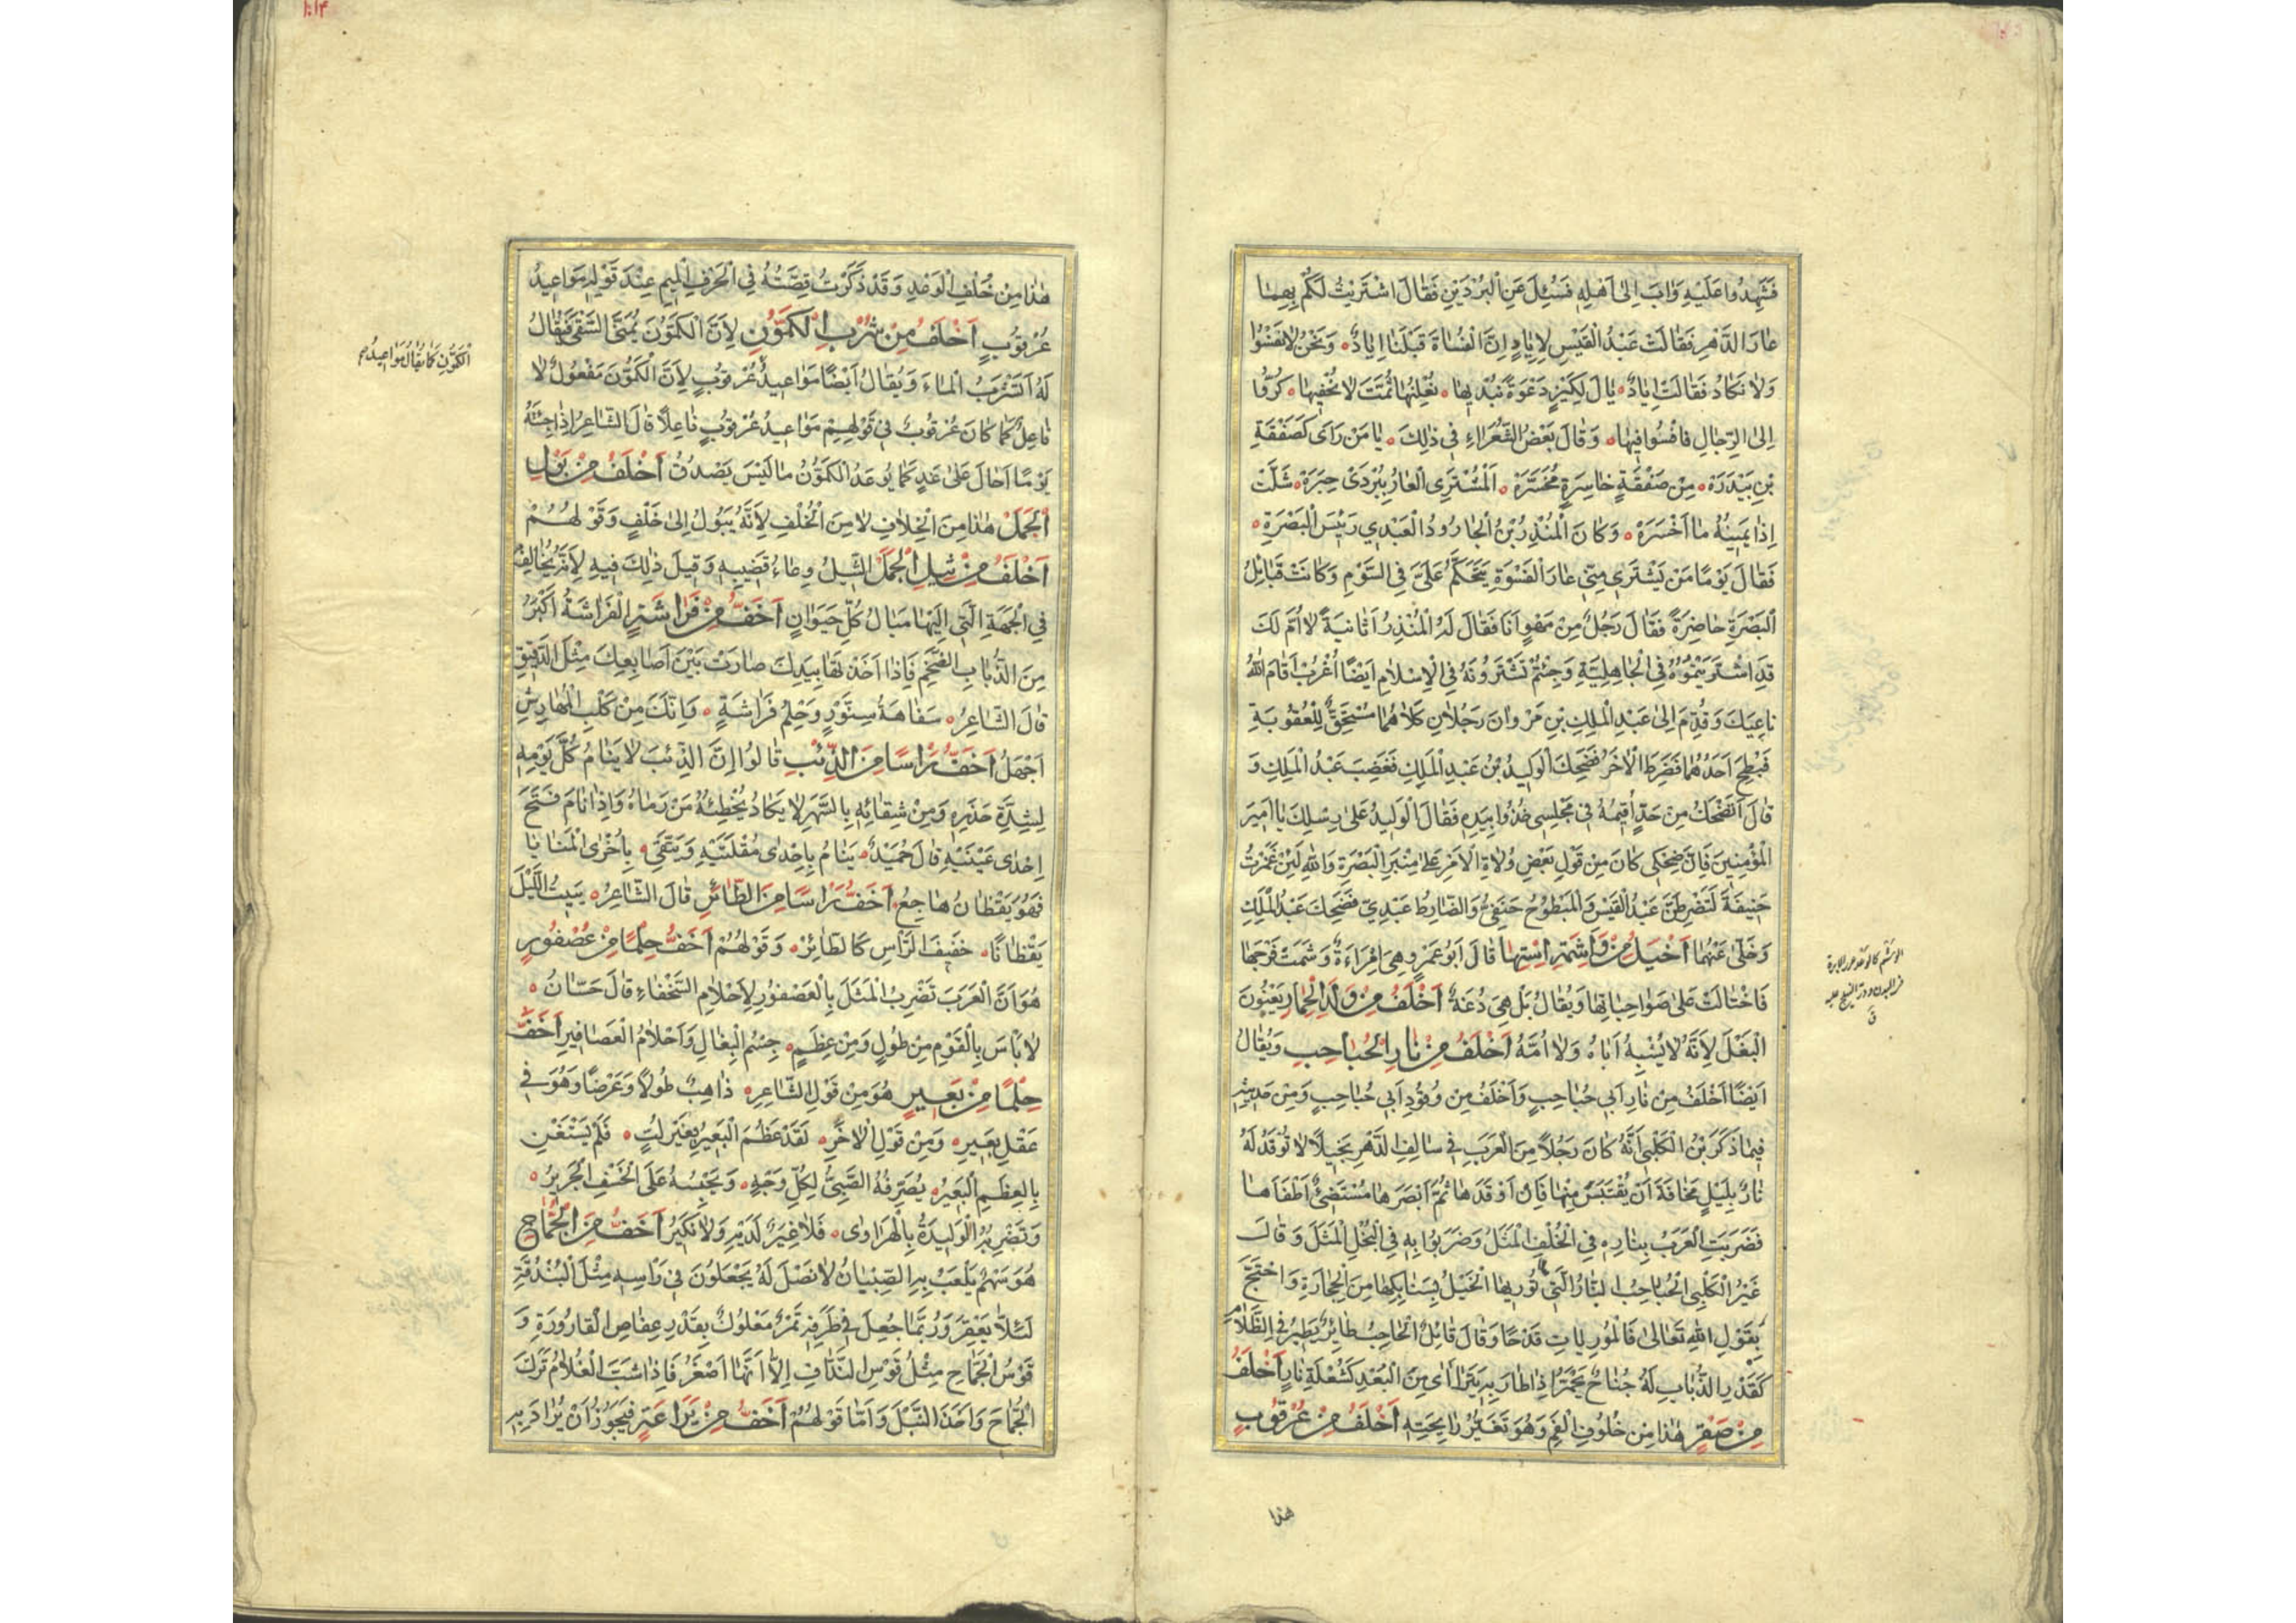 فَشَهِدُوا عَلَيْهِ وَآبَ اِلىٰ اَهْلِهِ فَسُئِلَ عَنِ الْبُرْدَيْنِ فَقَالَ اشْتَرَيْتُ لَكُمْ بِهِمَا
عَارَ الدَّهْرِ فَقَالَتْ عَبْدُ الْقَيْسِ لِاِيَادٍ اِنَّ الْفُسَاةَ قَبْلَنَا اِيَادُ وَنَحْنُ لَا نَفْسُوا
وَلَا نَكَادُ فَقَالَتْ اِيَادٌ يَالَ لُكَيْزٍ دَعْوَةً نُبْدِيهَا نُعْلِنُهَا ثُمَّتَ لَا نُخْفِيهَا كَرُّوا
اِلَى الرِّجَالِ فَافْسُوا فِيهَا وَقَالَ بَعْضُ الشُّعَرَاءِ فِي ذٰلِكَ يَا مَنْ رَأَى كَصَفْقَةِ
بْنِ بَيْدَرَهْ مِنْ صَفْقَةٍ خَاسِرَةٍ مُخَسَّرَهْ اَلْمُشْتَرِي الْعَارَ بِبُرْدَيْ حِبَرَهْ شَلَّتْ
اِذًا يَمِينُهُ مَا اَخْسَرَهْ وَكَانَ الْمُنْذِرُ بْنُ الْجَارُودِ الْعَبْدِي رَئِيسَ الْبَصْرَةِ
فَقَالَ يَوْمًا مَنْ يَشْتَرِي مِنِّي عَارَ الْفَسْوَةِ يَتَحَكَّمُ عَلَيَّ فِي السَّوْمِ وَكَانَتْ قَبَائِلُ
الْبَصْرَةِ حَاضِرَةً فَقَالَ رَجُلٌ مِنْ مَهْوٍ اَنَا فَقَالَ لَهُ الْمُنْذِرُ اَثَانِيَةً لَا اُمَّ لَكَ
قَدِ اشْتَرَيْتُمُوهُ فِي الْجَاهِلِيَّةِ وَجِئْتُمْ تَشْتَرُونَهُ فِي الْاِسْلَامِ اَيْضًا اُغْرُبْ اَقَامَ اللّٰهُ
نَاعِيَكَ وَقُدِّمَ اِلىٰ عَبْدِ الْمَلِكِ بْنِ مَرْوَانَ رَجُلَانِ كِلَاهُمَا مُسْتَحِقٌّ لِلْعُقُوبَةِ
فَبُطِحَ اَحَدُهُمَا فَضَرَطَ الْآخَرُ فَضَحِكَ الْوَلِيدُ بْنُ عَبْدِ الْمَلِكِ فَغَضِبَ عَبْدُ الْمَلِكِ وَ
قَالَ اَتَضْحَكُ مِنْ حَدٍّ اُقِيمُهُ فِي مَجْلِسِي خُذُوا بِيَدِهِ فَقَالَ الْوَلِيدُ عَلىٰ رِسْلِكَ يَا اَمِيرَ
الْمُؤْمِنِينَ فَاِنَّ ضِحْكِي كَانَ مِنْ قَوْلِ بَعْضِ وُلَاةِ الْاَمْرِ عَلىٰ مِنْبَرِ الْبَصْرَةِ وَاللّٰهِ لَئِنْ غَمَزْتُ
حَنِيفَةَ لَتَضْرِطَنَّ عَبْدُ الْقَيْسِ وَالْمَبْطُوحُ حَنَفِيٌّ وَالضَّارِطُ عَبْدِيٌّ فَضَحِكَ عَبْدُ الْمَلِكِ
وَخَلَّىٰ عَنْهُمَا اَخْيَلُ مِنْ وَاشِمَةِ اسْتِهَا قَالَ اَبُو عَمْرٍو هِيَ امْرَاَةٌ وَشَمَتْ فَرْجَهَا
فَاخْتَالَتْ عَلىٰ صَوَاحِبَاتِهَا وَيُقَالُ بَلْ هِيَ دُغَةُ اَخْلَفُ مِنْ وَلَدِ الْحِمَارِ يَعْنُونَ
الْبَغْلَ لِاَنَّهُ لَا يُشْبِهُ اَبَاهُ وَلَا اُمَّهُ اَخْلَفُ مِنْ نَارِ الْحُبَاحِبِ وَيُقَالُ
اَيْضًا اَخْلَفُ مِنْ نَارِ اَبِي حُبَاحِبٍ وَاَخْلَفُ مِنْ وُقُودِ اَبِي حُبَاحِبٍ وَمِنْ حَدِيثِهِ
فِيمَا ذَكَرَ بْنُ الْكَلْبِيِّ اَنَّهُ كَانَ رَجُلًا مِنَ الْعَرَبِ فِي سَالِفِ الدَّهْرِ بَخِيلًا لَا تُوقَدُ لَهُ
نَارٌ بِلَيْلٍ مَخَافَةَ اَنْ يُقْتَبَسَ مِنْهَا فَاِنْ اَوْقَدَهَا ثُمَّ اَبْصَرَهَا مُسْتَضِيءٌ اَطْفَاَهَا
فَضَرَبَتِ الْعَرَبُ بِنَارِهِ فِي الْخُلْفِ الْمَثَلَ وَضَرَبُوا بِهِ فِي الْبُخْلِ الْمَثَلَ وَقَالَ
غَيْرُ الْكَلْبِي الْحُبَاحِبُ النَّارُ الَّتِي تُورِيهَا الْخَيْلُ بِسَنَابِكِهَا مِنَ الْحِجَارَةِ وَاحْتَجَّ
بِقَوْلِ اللّٰهِ تَعَالىٰ فَالْمُورِيَاتِ قَدْحًا وَقَالَ قَائِلٌ الْحَبَاحِبُ طَائِرٌ يَطِيرُ فِي الظَّلَامِ
كَقَدْرِ الذُّبَابِ لَهُ جَنَاحٌ يَحْمَرُّ اِذَا طَارَ بِهِ يَتَرَاأَى مِنَ الْبُعْدِ كَشُعْلَةِ نَارٍ اَخْلَفُ
مِنْ صَقْرٍ هٰذَا مِنْ خُلُوفِ الْفَمِ وَهُوَ تَغَيُّرُ رَايِحَتِهِ اَخْلَفُ مِنْ عُرْقُوبٍ
هذا
هٰذَا مِنْ خُلْفِ الْوَعْدِ وَقَدْ ذَكَرْتُ قِصَّتَهُ فِي الْحَرْفِ الْمِيمِ عِنْدَ قَوْلِهِ مَوَاعِيدُ
عُرْقُوبٍ اَخْلَفُ مِنْ شُرْبِ الْكَمُّونِ لِاَنَّ الْكَمُّونَ يُمَنَّى السَّقْيَ فَيُقَالُ
لَهُ اَتَشْرَبُ الْمَاءَ وَيُقَالُ اَيْضًا مَوَاعِيدُ عُرْقُوبٍ لِاَنَّ الْكَمُّونَ مَفْعُولٌ لَا
الْكَمُّونِ كَمَا يُقَالُ مَوَاعِيدُ صح
فَاعِلٌ كَمَا كَانَ عُرْقُوبٌ فِي قَوْلِهِمْ مَوَاعِيدُ عُرْقُوبٍ فَاعِلًا قَالَ الشَّاعِرُ اِذَا جِئْتَهُ
يَوْمًا اَحَالَ عَلىٰ غَدٍ كَمَا يُوعَدُ الْكَمُّونُ مَا لَيْسَ يَصْدُقُ اَخْلَفُ مِنْ بَوْلِ
الْجَمَلِ هٰذَا مِنَ الْخِلَافِ لَا مِنَ الْخُلْفِ لِاَنَّهُ يَبُولُ اِلىٰ خَلْفٍ وَقَوْلُهُمْ
اَخْلَفُ مِنْ ثِيلِ الْجَمَلِ الثِّيلُ وِعَاءُ قَضِيبِهِ وَقِيلَ ذٰلِكَ فِيهِ لِاَنَّهُ يُخَالِفُ
فِي الْجِهَةِ الَّتِي اِلَيْهَا مَبَالُ كُلِّ حَيَوَانٍ اَخَفُّ مِنْ فَرَاشَةٍ الْفَرَاشَةُ اَكْبَرُ
مِنَ الذُّبَابِ الضَّخْمِ فَاِذَا اَخَذْتَهَا بِيَدِكَ صَارَتْ بَيْنَ اَصَابِعِكَ مِثْلَ الدَّقِيقِ
قَالَ الشَّاعِرُ سَفَاهَةُ سِنَّوْرٍ وَحِلْمُ فَرَاشَةٍ وَاِنَّكَ مِنْ كَلْبِ الْمُهَارِشِ
اَجْهَلُ اَخَفُّ رَاْسًا مِنَ الذِّئْبِ قَالُوا اِنَّ الذِّئْبَ لَا يَنَامُ كُلَّ يَوْمِهِ
لِشِدَّةِ حَذَرِهِ وَمِنْ شِقَائِهِ بِالسَّهَرِ لَا يَكَادُ يُخْطِئُهُ مَنْ رَمَاهُ وَاِذَا نَامَ فَتَحَ
اِحْدٰى عَيْنَيْهِ قَالَ حُمَيْدٌ يَنَامُ بِاِحْدٰى مُقْلَتَيْهِ وَيَتَّقِي بِاُخْرَى الْمَنَايَا
فَهُوَ يَقْظَانُ هَاجِعُ اَخَفُّ رَاْسًا مِنَ الطَّائِرِ قَالَ الشَّاعِرُ يَبِيتُ اللَّيْلَ
يَقْظَانًا خَفِيفَ الرَّاْسِ كَالطَّائِرْ وَقَوْلُهُمْ اَخَفُّ حِلْمًا مِنْ عُصْفُورٍ
هُوَ اَنَّ الْعَرَبَ تَضْرِبُ الْمَثَلَ بِالْعُصْفُورِ لِاَحْلَامِ السُّخَفَاءِ قَالَ حَسَّانُ
لَا بَأْسَ بِالْقَوْمِ مِنْ طُولٍ وَمِنْ عِظَمٍ جِسْمُ الْبِغَالِ وَاَحْلَامُ الْعَصَافِيرِ اَخَفُّ
حِلْمًا مِنْ بَعِيرٍ هُوَ مِنْ قَوْلِ الشَّاعِرِ ذَاهِبٌ طُولًا وَعَرْضًا وَهُوَ فِي
عَقْلِ بَعِيرِ وَمِنْ قَوْلِ الْآخَرِ لَقَدْ عَظُمَ الْبَعِيرُ بِغَيْرِ لُبٍّ فَلَمْ يَسْتَغْنِ
بِالْعِظَمِ الْبَعِيرُ يُصَرِّفُهُ الصَّبِيُّ لِكُلِّ وَجْهٍ وَيَحْبِسُهُ عَلَى الْخَسْفِ الْجَرِيرُ
وَتَضْرِبُهُ الْوَلِيدَةُ بِالْهَرَاوٰى فَلَا غِيَرٌ لَدَيْهِ وَلَا نَكِيرُ اَخَفُّ مِنَ الْجُمَّاحِ
هُوَ سَهْمٌ يَلْعَبُ بِهِ الصِّبْيَانُ لَا نَصْلَ لَهُ يَجْعَلُونَ فِي رَاْسِهِ مِثْلَ الْبُنْدُقَةِ
لِئَلَّا يَعْقِرَ وَرُبَّمَا جُعِلَ فِي طَرَفِهِ تَمْرٌ مَعْلُوكٌ بِقَدْرِ عِفَاصِ الْقَارُورَةِ وَ
قَوْسُ الْجُمَّاحِ مِثْلُ قَوْسِ النَّدَّافِ اِلَّا اَنَّهَا اَصْغَرُ فَاِذَا شَبَّ الْغُلَامُ تَرَكَ
الْجُمَّاحَ وَاَخَذَ النَّبْلَ وَاَمَّا قَوْلُهُمْ اَخَفُّ مِنْ يَرَاعَةٍ فَيَجُوزُ اَنْ يُرَادَ بِهِ